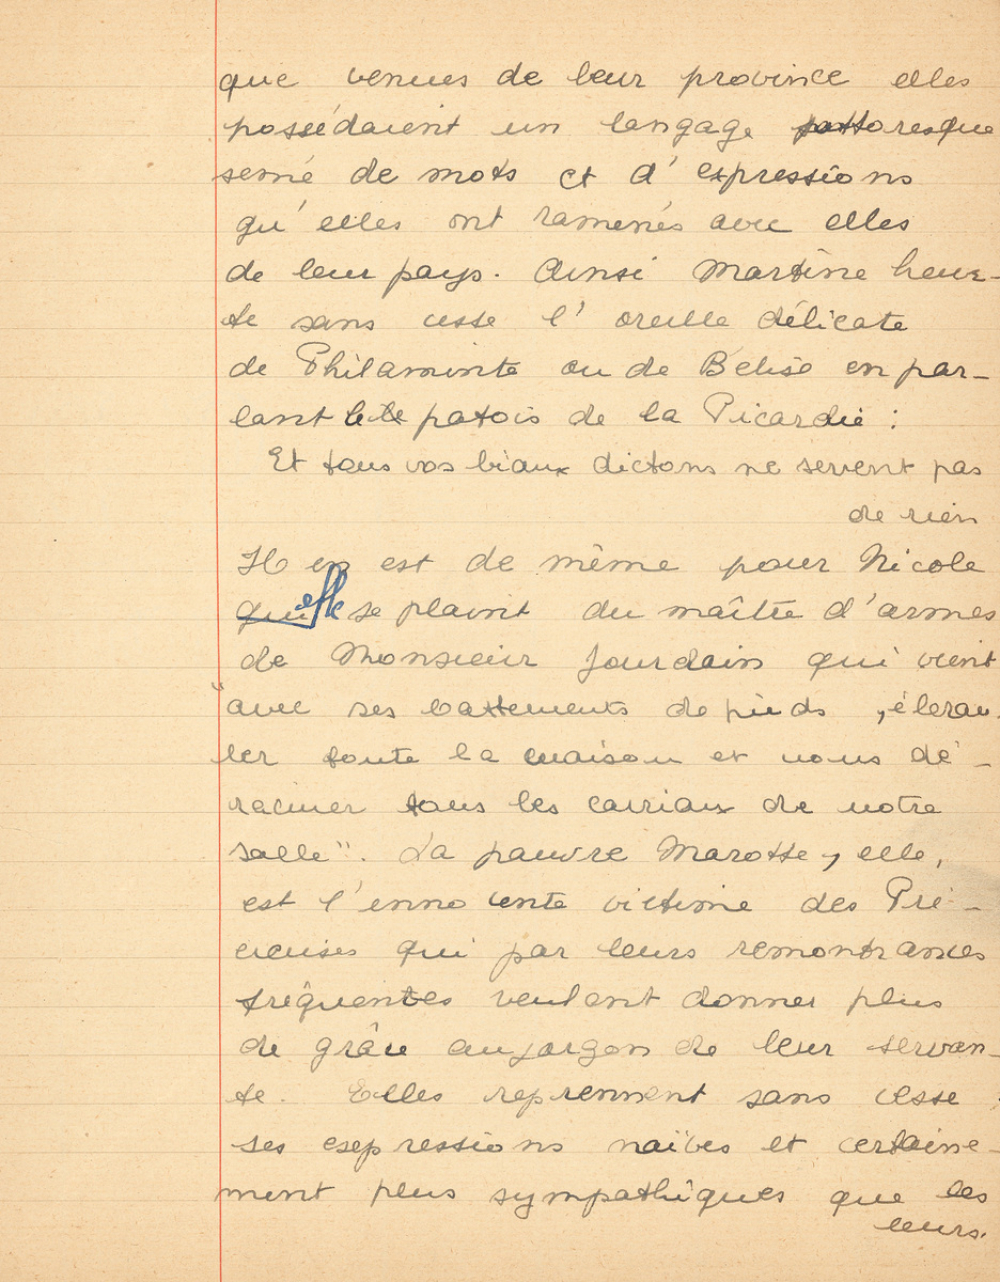 que venues de leur province elles
possédaient un langage pittoresque
semé de mots et d'expressions
qu'elles ont ramenés avec elles
de leur pays. Ainsi Martine heur-
te sans cesse l'oreille délicate
de Philaminte ou de Bélise en par-
lant le patois de la Picardie :
Et tous vos biaux dictons ne servent pas
de rien
Il en est de même pour Nicole
qui elle se plaint du maître d'armes
de Monsieur Jourdain qui vient
"avec ses battements de pieds, ébran-
ler toute la maison et nous dé-
raciner tous les carriaux de notre
salle". La pauvre Marotte, elle,
est l'innocente victime des Pré-
cieuses qui par leurs remontrances
fréquentes veulent donner plus
de grâce au jargon de leur servan-
te. Elles reprennent sans cesse
ses expressions naïves et certaine-
ment plus sympathiques que les
leurs.